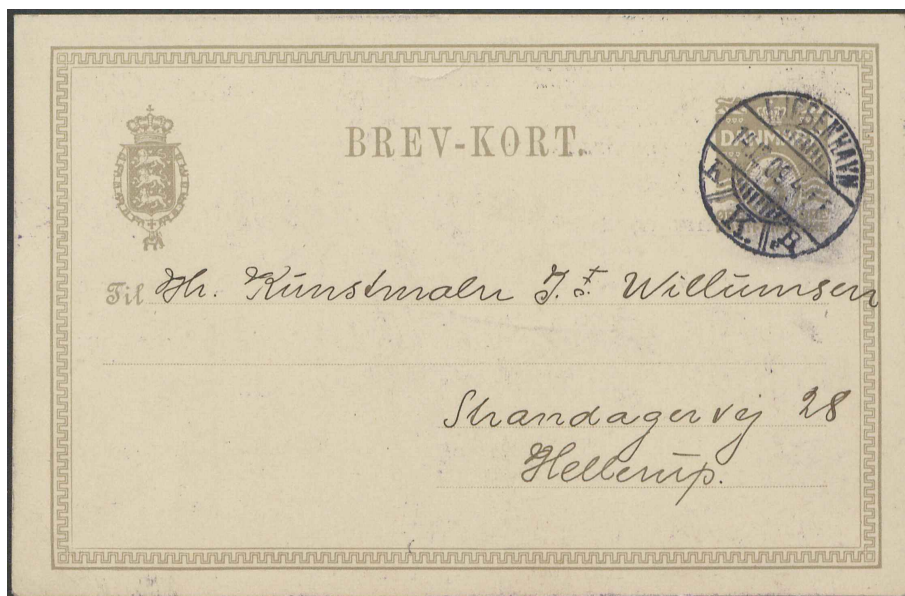 BREV-KORT.
DANMARK
KJØBENHAVN
K. B
Til Hr. Kunstmaler J. F. Willumsen
Strandagervej 28
Hellerup.